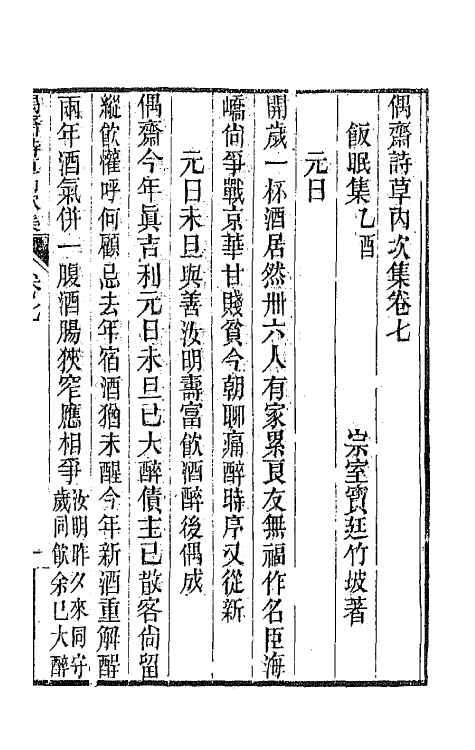 偶齋詩草內次集卷七
飯眠集乙酉
宗室寶廷竹坡著
元日
開歲一杯酒居然卌六人有家累良友無福作名臣海
嶠尙爭戰京華甘賤貧今朝聊痛醉時序又從新
元日未旦與善汝明壽富飮酒醉後偶成
偶齋今年眞吉利元日未旦已大醉債主已散客尙留
縱飮懽呼何顧忌去年宿酒猶未醒今年新酒重解酲
兩年酒氣併一腹酒腸狹窄應相爭汝明昨夕來同守
歲同飮余已大醉
偶齋詩草內次集 卷七 一